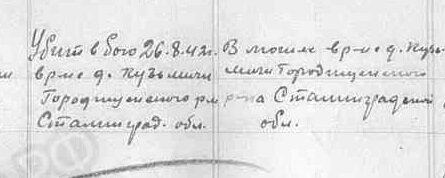 Убит в бою 26.8.42г.
в р-не д. Кузьмичи
Городищенского р-на
Сталинград. обл.
В могиле в р-не д. Кузь-
мичи Городищенского
р-на Сталинградской
обл.